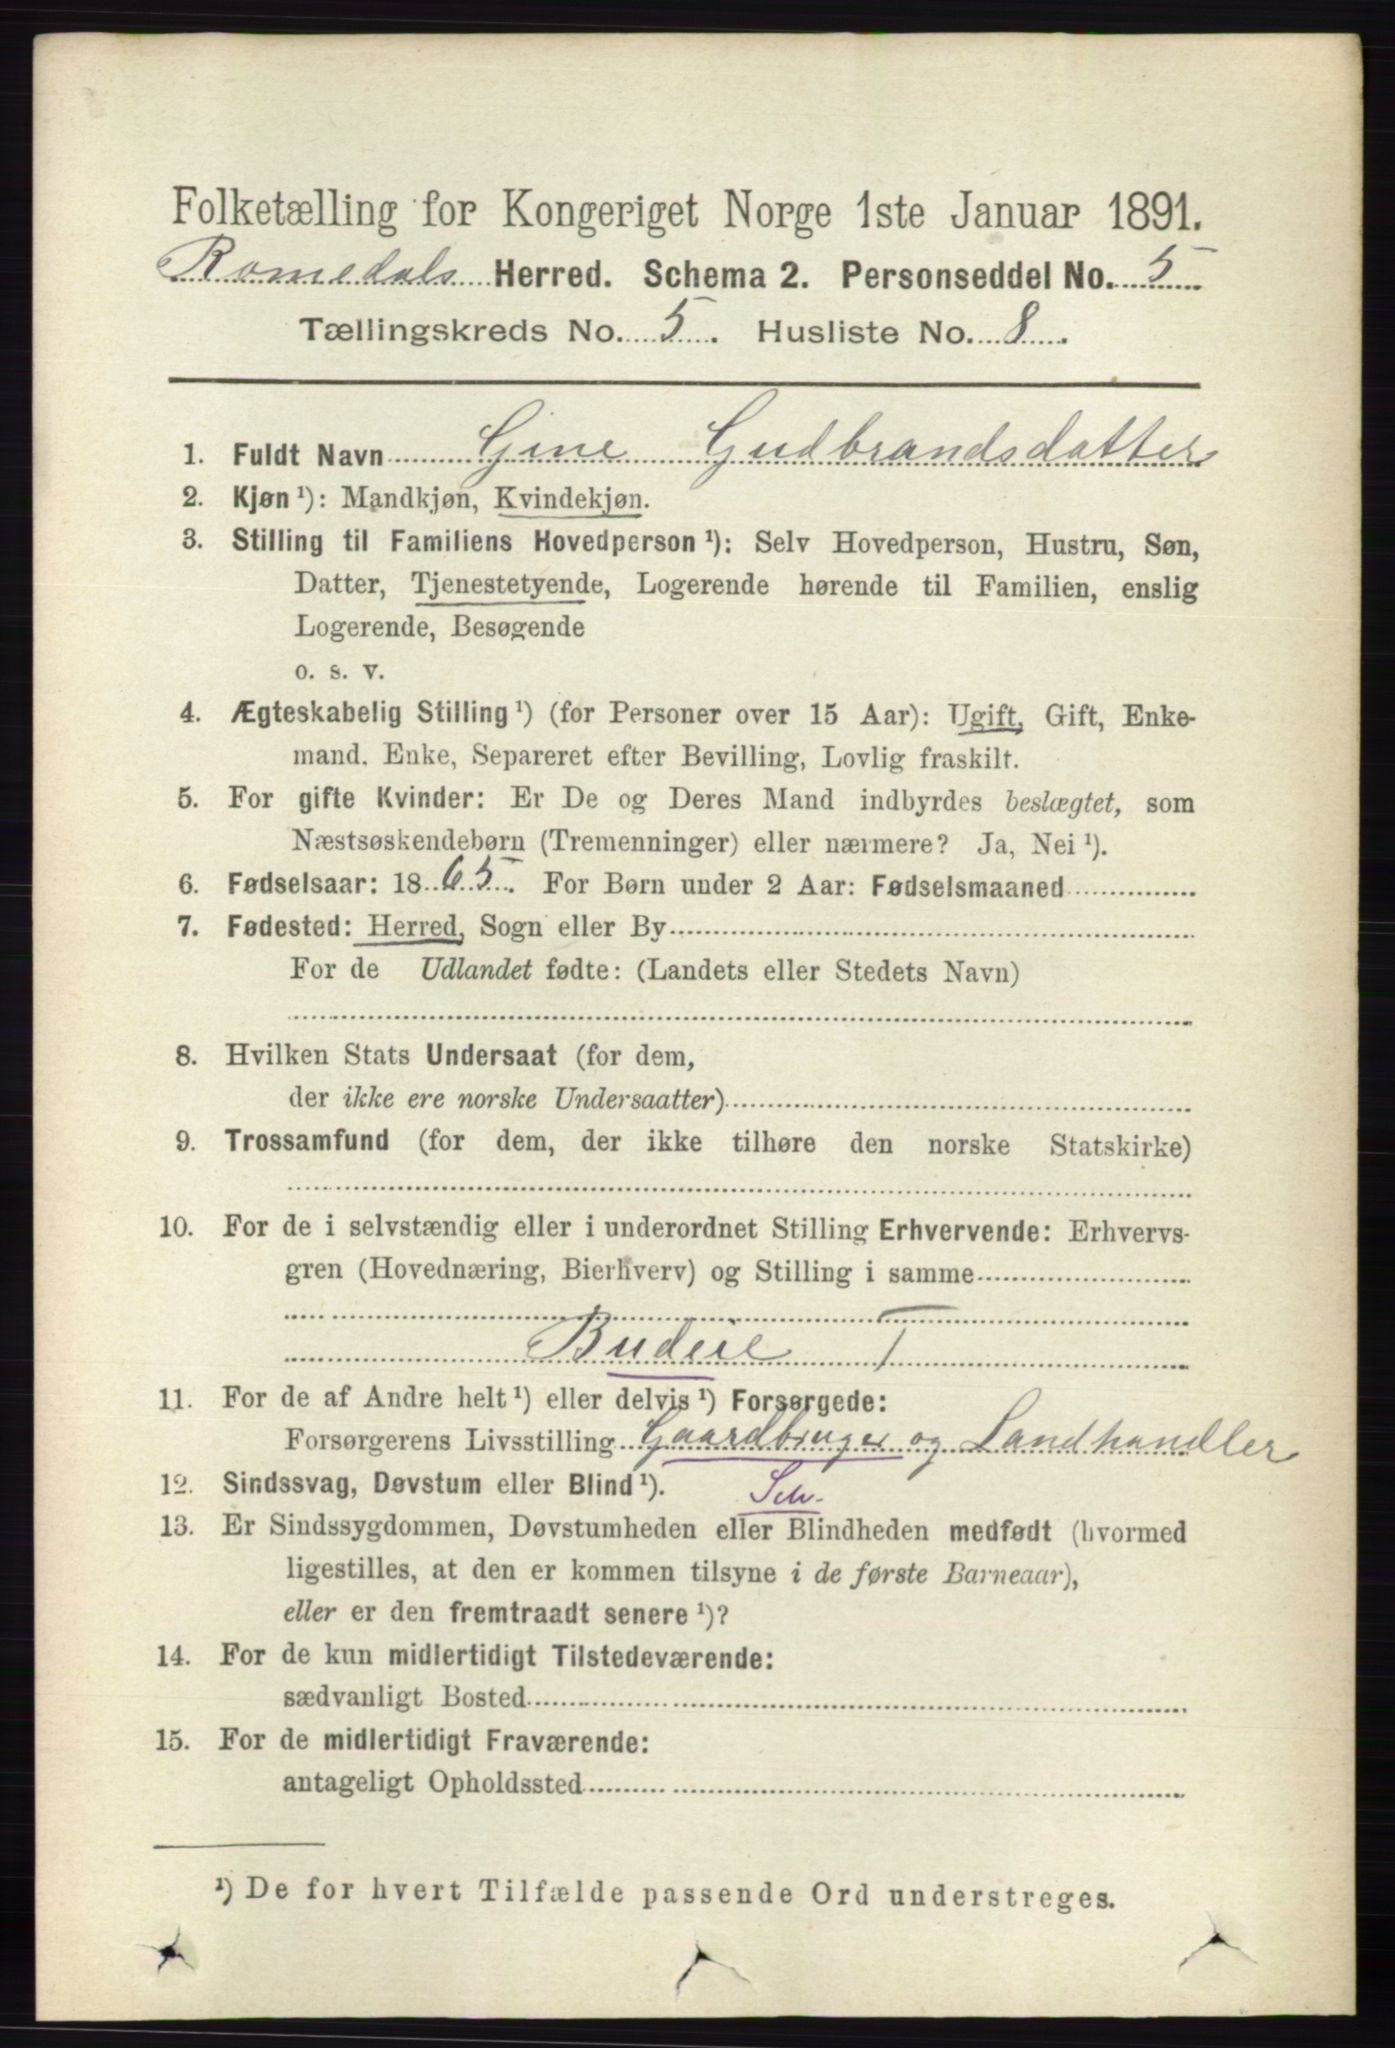 Folketælling for Kongeriget Norge 1ste Januar 1891.
Romedals Herred. Schema 2. Personseddel No. 5
Tællingskreds No. 5. Husliste No. 8.
1. Fuldt Navn Gine Gudbrandsdatter
2. Kjøn ¹): Mandkjøn, Kvindekjøn.
3. Stilling til Familiens Hovedperson ¹): Selv Hovedperson, Hustru, Søn,
Datter, Tjenestetyende, Logerende hørende til Familien, enslig
Logerende, Besøgende
o. s. v.
4. Ægteskabelig Stilling ¹) (for Personer over 15 Aar): Ugift, Gift, Enke-
mand, Enke, Separeret efter Bevilling, Lovlig fraskilt.
5. For gifte Kvinder: Er De og Deres Mand indbyrdes beslægtet, som
Næstsøskendebørn (Tremenninger) eller nærmere? Ja, Nei ¹).
6. Fødselsaar: 1865. For Børn under 2 Aar: Fødselsmaaned
7. Fødested: Herred, Sogn eller By
For de Udlandet fødte: (Landets eller Stedets Navn)
8. Hvilken Stats Undersaat (for dem,
der ikke ere norske Undersaatter)
9. Trossamfund (for dem, der ikke tilhøre den norske Statskirke)
10. For de i selvstændig eller i underordnet Stilling Erhvervende: Erhvervs-
gren (Hovednæring, Bierhverv) og Stilling i samme
Budeie T
11. For de af Andre helt ¹) eller delvis ¹) Forsørgede:
Forsørgerens Livsstilling Gaardbruger og Landhandler
12. Sindssvag, Døvstum eller Blind ¹). Selv.
13. Er Sindssygdommen, Døvstumheden eller Blindheden medfødt (hvormed
ligestilles, at den er kommen tilsyne i de første Barneaar),
eller er den fremtraadt senere ¹)?
14. For de kun midlertidigt Tilstedeværende:
sædvanligt Bosted
15. For de midlertidigt Fraværende:
antageligt Opholdssted
¹) De for hvert Tilfælde passende Ord understreges.